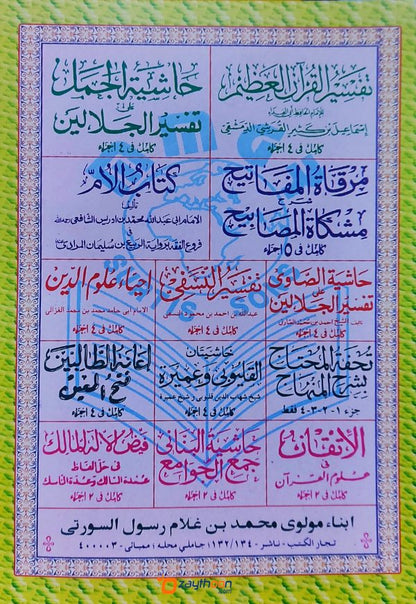 تفسير القرآن العظيم
للإمام الحافظ أبي الفداء
إسماعيل بن كثير القرشي الدمشقي
كامل في ٤ اجزاء
حاشية الجمل
على
تفسير الجلالين
كامل في ٤ اجزاء
مرقاة المفاتيح
شرح
مشكاة المصابيح
كامل في ٥ اجزاء
كتاب الأم
تأليف
الامام ابى عبد الله محمد بن ادريس الشافعي
فروع الفقه برواية الربيع بن سليمان المرادي
كامل في ٤ اجزاء
حاشية الصاوى
على
تفسير الجلالين
تأليف الشيخ احمد بن محمد الصاوى
كامل في ٤ اجزاء
تفسير النسفي
عبد الله بن احمد بن محمود النسفى
كامل في ٤ اجزاء
إحياء علوم الدين
الامام ابى حامد محمد بن محمد الغزالى
كامل في ٤ اجزاء
تحفة المحتاج
بشرح المنهاج
جزء ١-٢-٣-٤ فقط
حاشيتان
القليوبي وعميرة
شيخ شهاب الدين قليوبى و شيخ عميرة
كامل في ٤ اجزاء
إعانة الطالبين
فتح المعين
كامل في ٤ اجزاء
الإتقان
في
علوم القرآن
كامل في ٢ اجزاء
حاشية البناني
على
جمع الجوامع
كامل في ٢ اجزاء
فيض الإله المالك
في حل الفاظ
عمدة السالك وعدة الناسك
كامل في ٢ اجزاء
ابناء مولوى محمد بن غلام رسول السورتى
تجار الكتب - ناشر - ١٣٢/١٣٤ جاملي محله : ممبائى - ٤٠٠٠٠٣
zaythoon